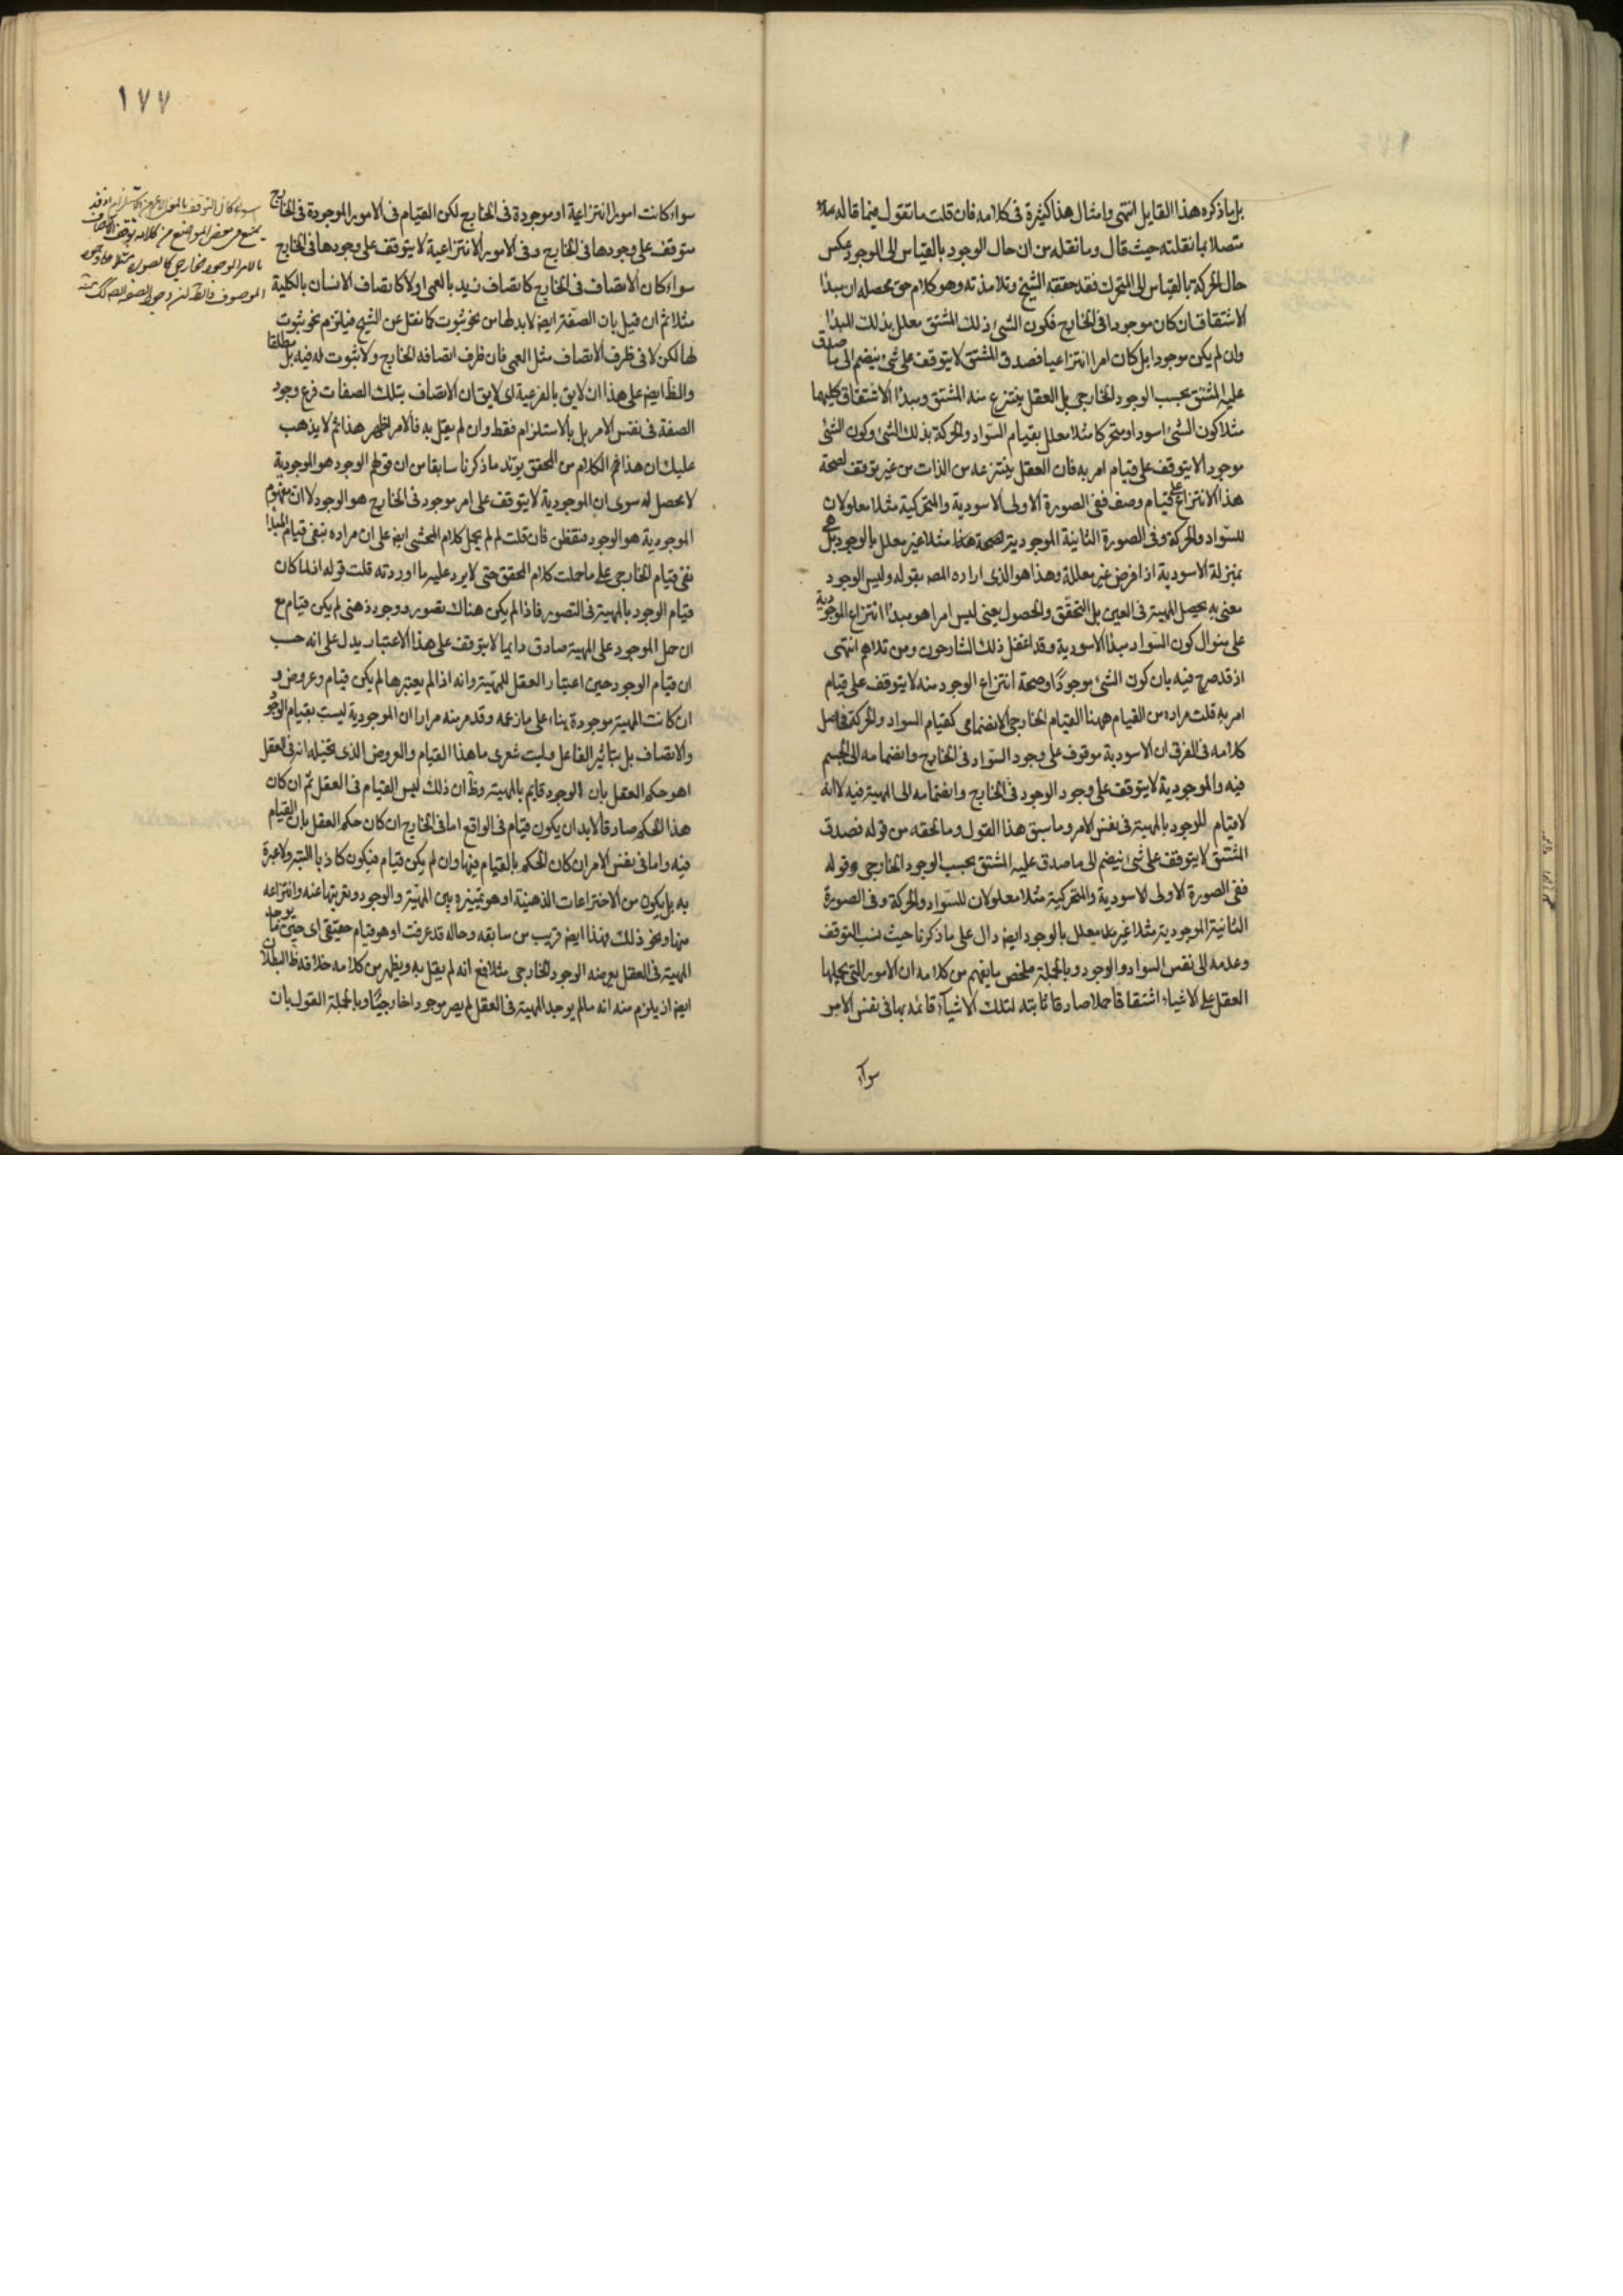 بل ما ذكره هذا القايل انتهى وامثال هذا كثيرة فى كلامه فان قلت ما تقول فيما قاله
متصلا بما نقلته حيث قال وما نقله من ان حال الوجود بالقياس الى الموجود عكس
حال الحركة بالقياس الى المتحرك فقد حققه الشيخ وتلامذته وهو كلام حق محصله ان مبدأ
الاشتقاق ان كان موجودا فى الخارج فكون الشئ ذلك المشتق معلل بذلك المبدأ
وان لم يكن موجودا بل كان امرا انتزاعيا فصدق المشتق لا يتوقف على شئ ينضم الى ما صدق
عليه المشتق بحسب الوجود الخارجى بل العقل ينتزع منه المشتق ومبدأ الاشتقاق كليهما
مثلا كون الشئ اسود او متحركا مثلا معلل بقيام السواد والحركة بذلك الشئ وكون الشئ
موجودا لا يتوقف على قيام امر به فان العقل ينتزعه من الذات من غير توقف لصحة
هذا الانتزاع على قيام وصف ففى الصورة الاولى الاسودية والمتحركية مثلا معلولان
للسواد والحركة وفى الصورة الثانية الموجودية مثلا غير معلل بالوجود بل هى
بمنزلة الاسودية اذا فرض غير معللة وهذا هو الذى اراده المصـ بقوله وليس الوجود
معنى به يحصل المهية فى العين بل التحقق والحصول يعنى ليس امرا هو مبدأ انتزاع الموجودية
على منوال كون السواد مبدأ الاسودية وقد اغفل ذلك الشارحون ومن تلاهم انتهى
اذ قد صرح فيه بان كون الشئ موجودًا وصحة انتزاع الوجود منه لا يتوقف على قيام
امر به قلت مراده من القيام ههنا القيام الخارجى الانضمامى كقيام السواد والحركة فحاصل
كلامه فى الفرق ان الاسودية موقوف على وجود السواد فى الخارج وانضمامه الى الجسم
فيه والموجودية لا يتوقف على وجود الوجود فى الخارج وانضمامه الى المهية فيه لا انه
لا قيام للوجود بالمهية فى نفس الامر وما سبق هذا القول وما لحقه من قوله فصدق
المشتق لا يتوقف على شئ ينضم الى ما صدق عليه المشتق بحسب الوجود الخارجى وقوله
ففى الصورة الاولى الاسودية والمتحركية مثلا معلولان للسواد والحركة وفى الصورة
الثانية الموجودية مثلا غير معلل بالوجود ايضا دال على ما ذكرنا حيث نسب التوقف
وعدمه الى نفس السواد والوجود وبالجملة ملخص ما يفهم من كلامه ان الامور التى يحملها
العقل على الاشياء اشتقاقا حملا صادقا ثابتة لتلك الاشياء قائمة بها فى نفس الامر
سواء
١٧٧
سواء كانت امورا انتزاعية او موجودة فى الخارج لكن القيام فى الامور الموجودة فى الخارج
متوقف على وجودها فى الخارج وفى الامور الانتزاعية لا يتوقف على وجودها فى الخارج
سواء كان الاتصاف فى الخارج كاتصاف زيد بالعمى اولا كاتصاف الانسان بالكلية
مثلا ثم ان قيل بان الصفة ايضا لا بد لها من نحو ثبوت كما نقل عن الشيخ فيلزم نحو ثبوت
لها لكن لا فى ظرف الاتصاف مثل العمى فان ظرف اتصافه الخارج ولا ثبوت له فيه بل مطلقا
والظ ايضا على هذا ان لا يق بالفرعية اى لا يق ان الاتصاف بتلك الصفات فرع وجود
الصفة فى نفس الامر بل بالاستلزام فقط وان لم يقل به فالامر اظهر هذا ثم لا يذهب
عليك ان هذا الكلام من المحقق يؤيد ما ذكرنا سابقا من ان قولهم الوجود هو الموجودية
لا محصل له سوى ان الموجودية لا يتوقف على امر موجود فى الخارج هو الوجود لا ان مفهوم
الموجودية هو الوجود فتفطن فان قلت لم لم يحمل كلام المحشى ايضا على ان مراده بنفى قيام المبدأ
نفى قيام الخارجى على ما حملت كلام المحقق حتى لا يرد عليه ما اوردته قلت قوله انما كان
قيام الوجود بالمهية فى التصور فاذا لم يكن هناك تصور ووجود ذهنى لم يكن قيام مع
ان حمل الموجود على المهية صادق دايما لا يتوقف على هذا الاعتبار يدل على انه حسب
ان قيام الوجود حين اعتبار العقل للمهية وانه اذا لم يعتبرها لم يكن قيام وعروض و
ان كانت المهية موجودة بناء على ما زعمه وقد مر منه مرارا ان الموجودية ليست بقيام الوجود
والاتصاف بل بتأثير الفاعل وليت شعرى ما هذا القيام والعروض الذى تخيله انه فى العقل
اهو حكم العقل بان الوجود قايم بالمهية وظ ان ذلك ليس القيام فى العقل ثم ان كان
هذا الحكم صادقا لا بد ان يكون قيام فى الواقع اما فى الخارج ان كان حكم العقل بان القيام
فيه واما فى نفس الامر ان كان الحكم بالقيام فيها وان لم يكن قيام فيكون كاذبا البتة ولا عبرة
به بل يكون من الاختراعات الذهنية او هو تمييزه بين المهية والوجود وتعريتها عنه وانتزاعه
منها ونحو ذلك فهذا ايضا قريب من سابقه وحاله قد عرفت او هو قيام حقيقى اى حين ما يوجد
المهية فى العقل يعرضه الوجود الخارجى مثلا فمع انه لم يقل به ويظهر من كلامه خلافه ظ البطلان
ايضا اذ يلزم منه انه ما لم يوجد المهية فى العقل لم يصر موجودا خارجيًا وبالجملة القول بان